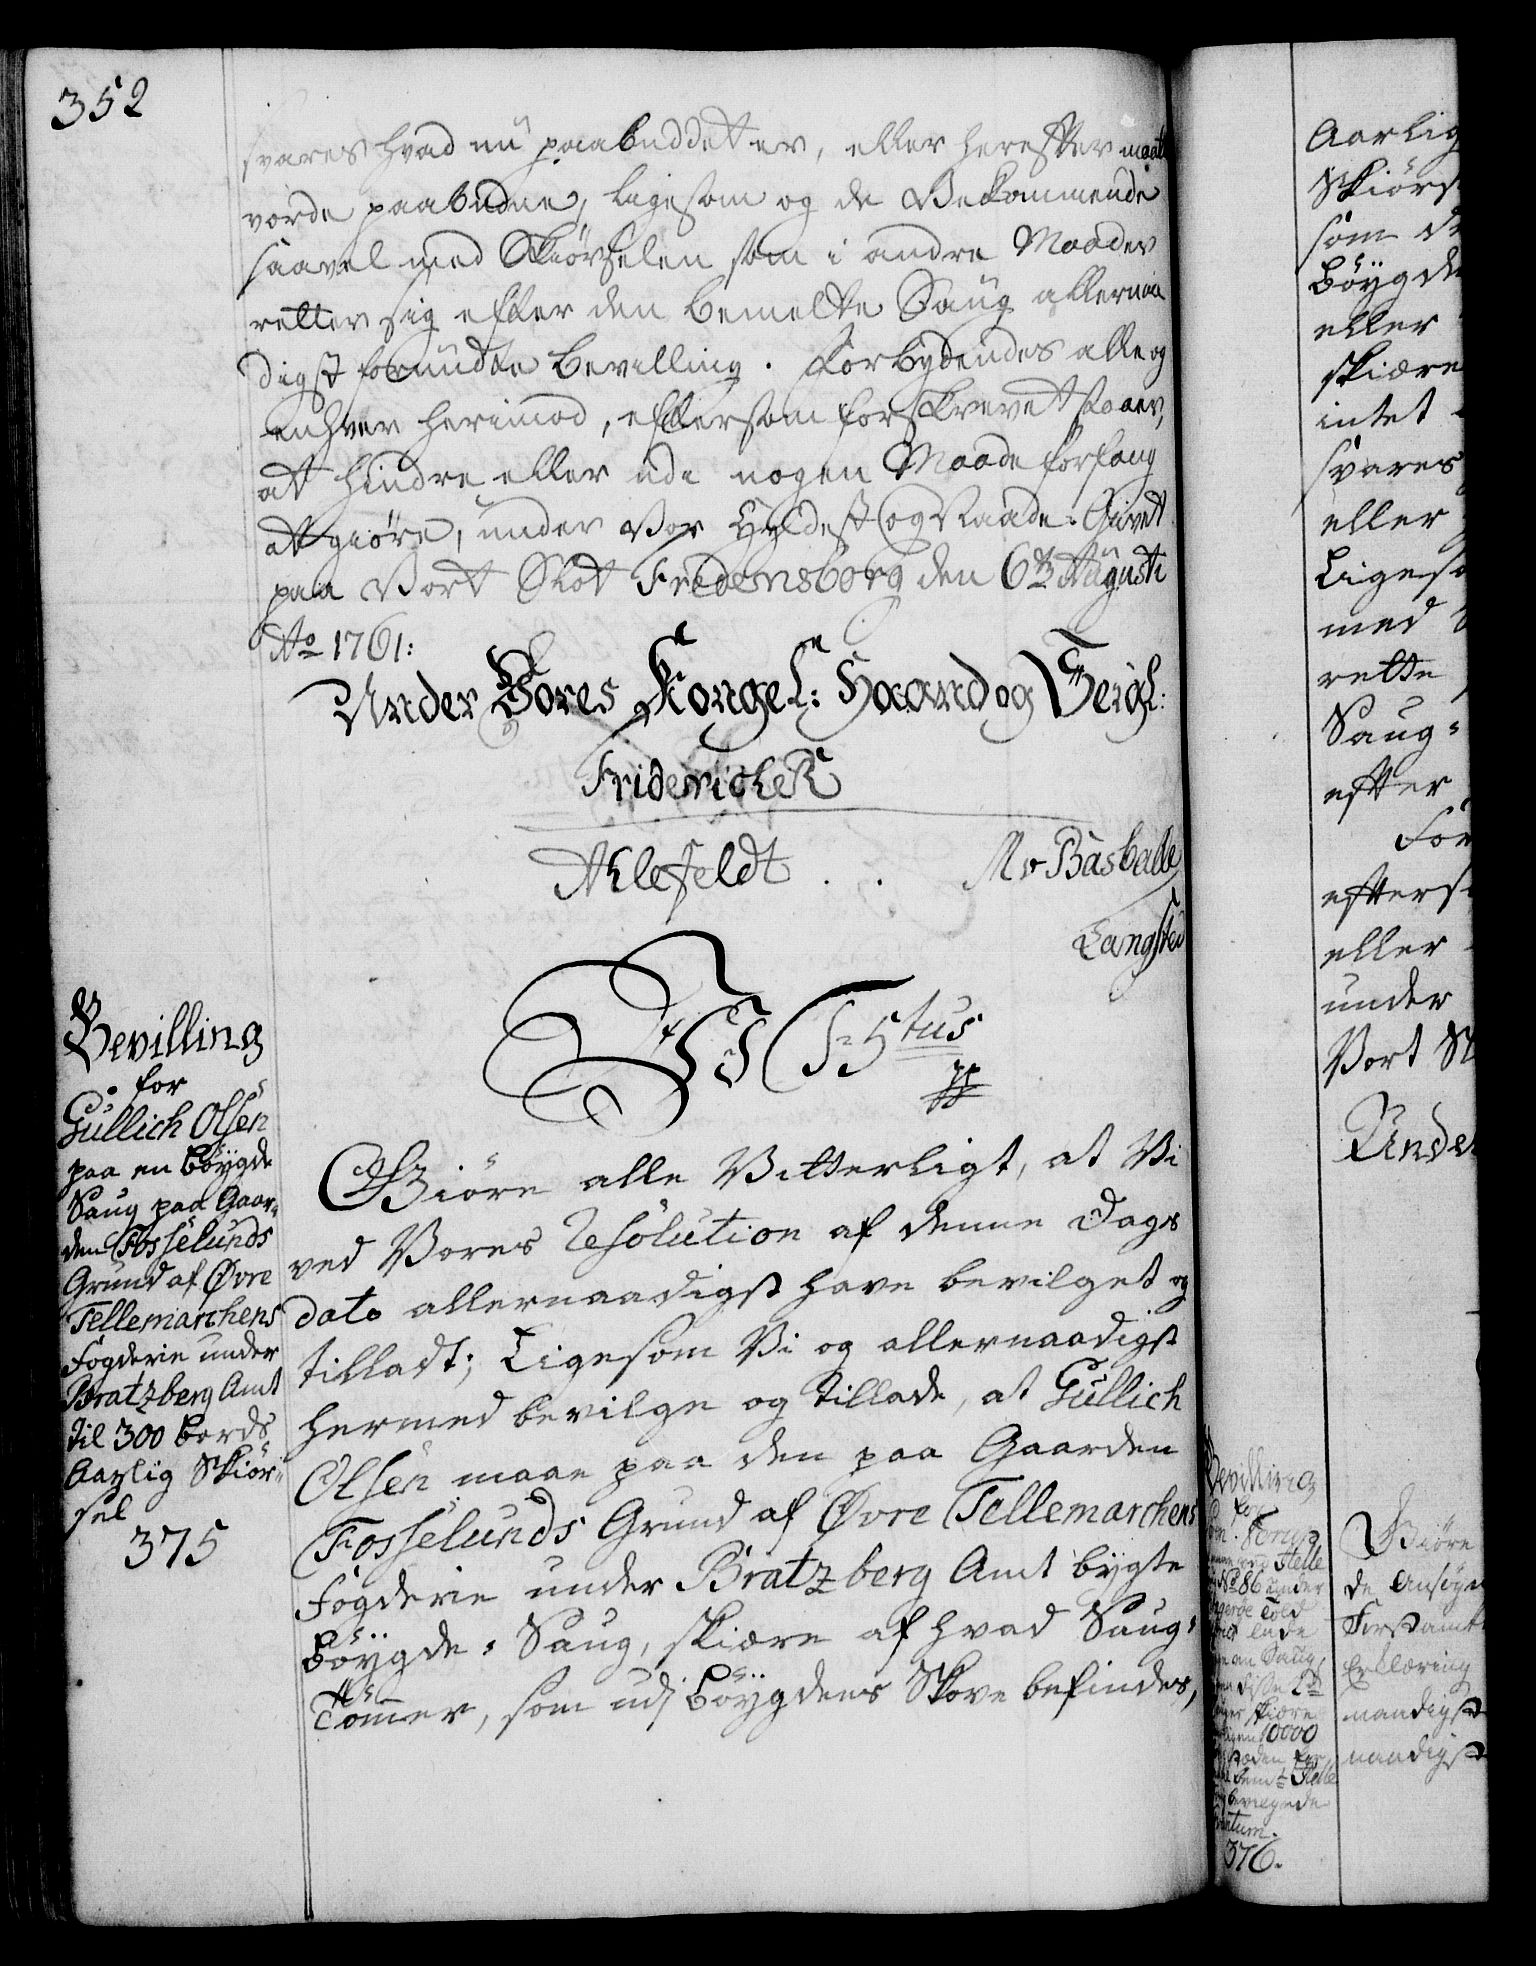 352
svares hvad nu paabuddet er, eller herefter maatte
vorde paabudne, ligesom og de Vedkommende
saavel med Skiørselen som i andre Maader
retter sig efter den bemelte Saug allernaa
digst forundte bevilling. Forbydendes alle og
enhver herimod, eftersom forskrevet staaer,
at hindre eller udi nogen Maade forfang
at giøre, under Vor Hyldest og Naade. Givet
paa Vort Slot Fredensborg den 6te Augusti
Ao 1761:
Under Vores Kongel: Haand og Seigl:
Friderich R
Ahlefeldt . . M v Basballe
Langsted
Bevilling
for
Gullich Olsen
paa en bøygde
Saug paa Gaar-
den Fosselunds
Grund af Øvre
Tellemarchens
Fogderie under
Bratzberg Amt
til 300 bords
Aarlig Skiør-
sel
375
Vi F: 5tus
pp
Giøre alle Vitterligt, at Vi
ved Vores resolution af denne Dags
dato allernaadigst have bevilget og
tilladt; Ligesom Vi og allernaadigst
hermed bevilge og tillade, at Gullich
Olsen maae paa den paa Gaarden
Fosselunds Grund af Øvre Tellemarchens
Fogderie under Bratzberg Amt bygte
bøygde-Saug, skiære af hvad Saug-
Tømmer, som udj bøygdens Skove befindes,
Aarlig
Skiørs
som d
bøygde
eller
skiære
intet
svares
eller
Ligeso
med
rette
Saug-
efter
For
efters
eller
under
Vort Sl
Unde
Bevilling
for
Helle
No 86 under
lade
en Saug,
disse 2de
skiære
10000
steden for
bem:te Helle
bevilgede
376.
Giøre
de Ansøg
Forstamt
Erklæring
naadigst
naadigst